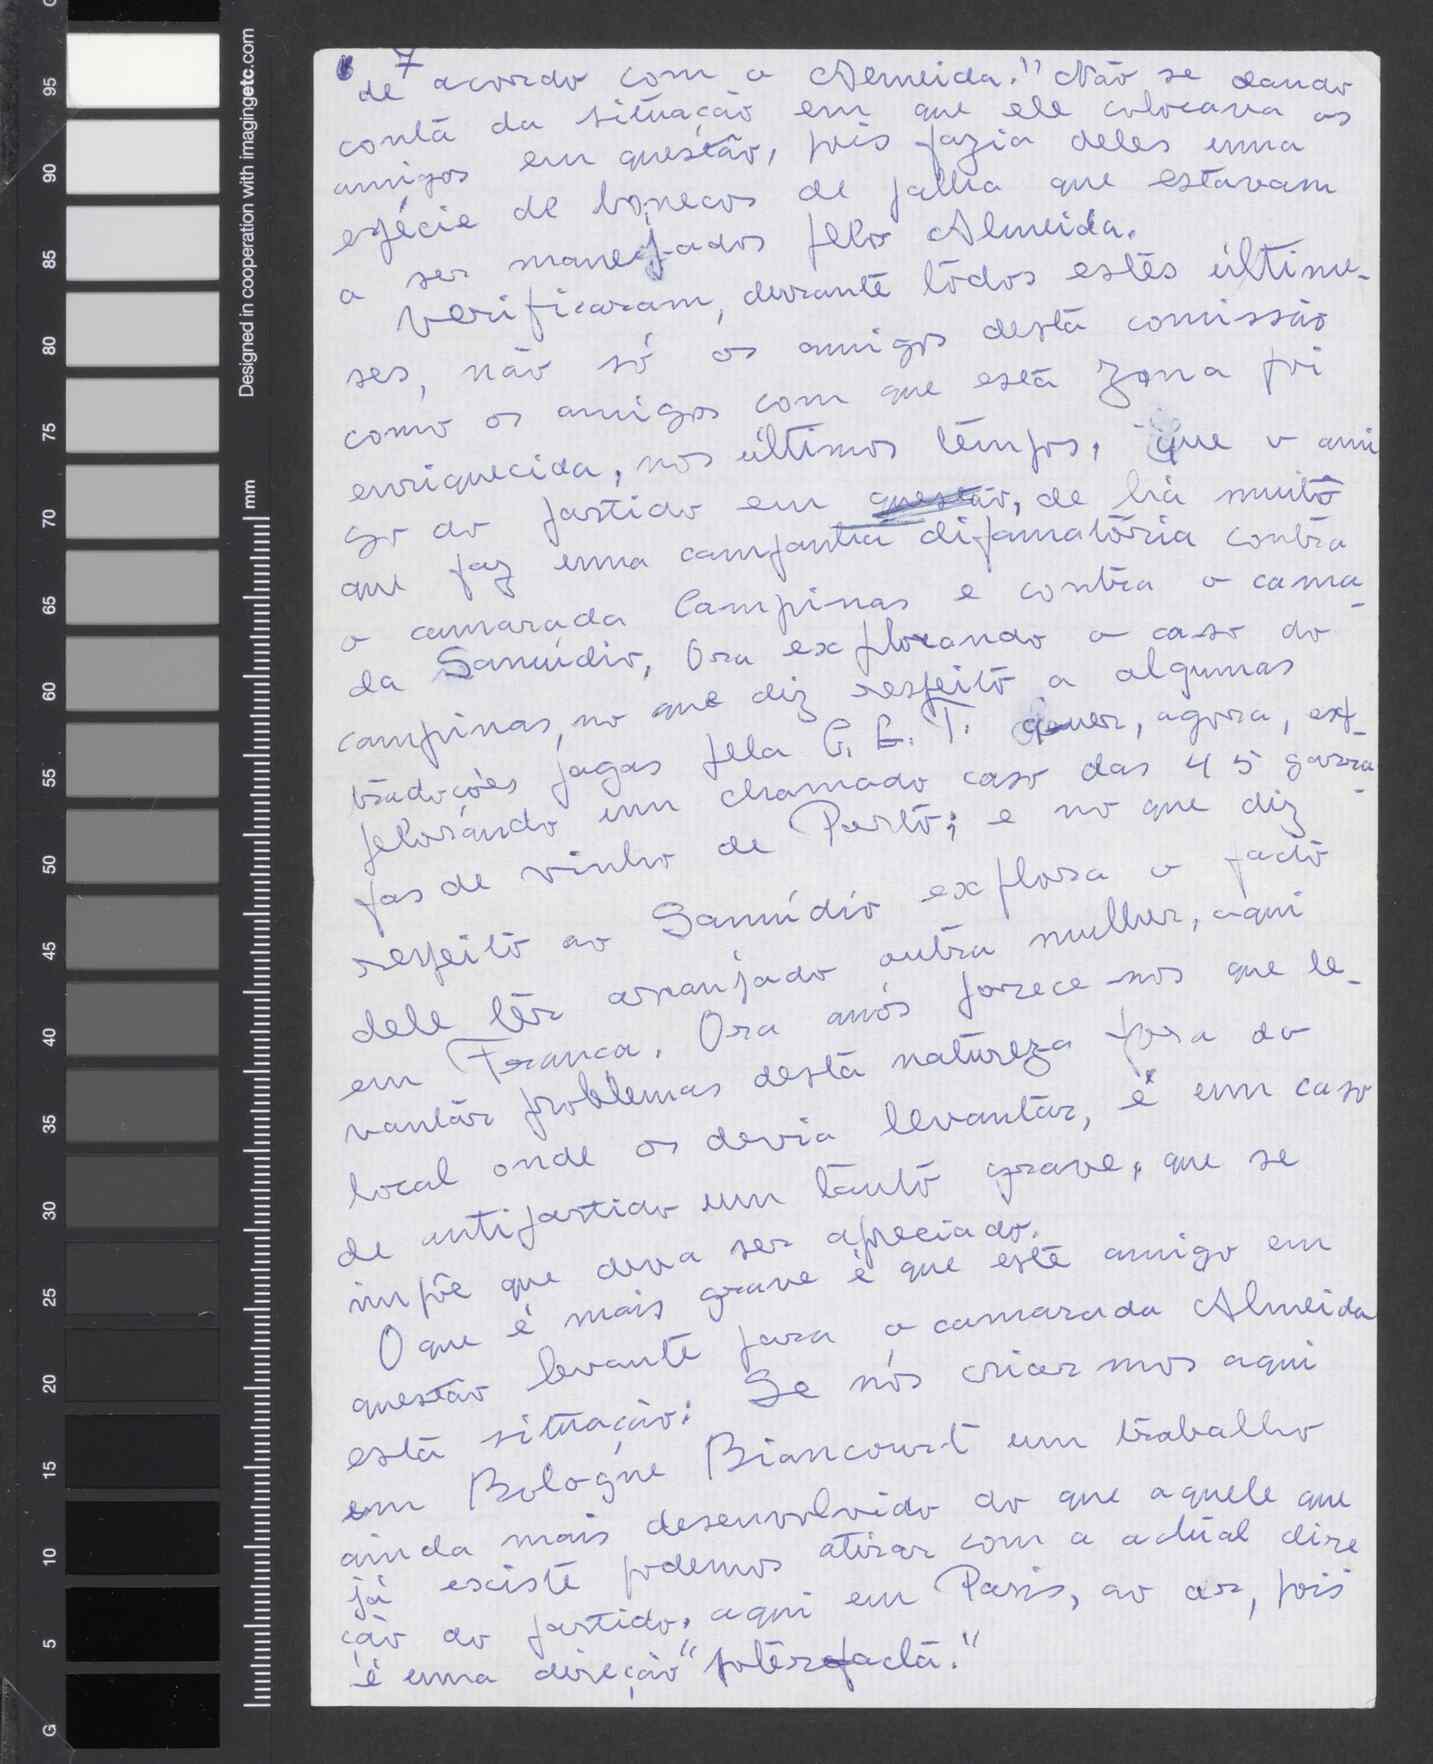 7
de acordo com o Almeida." Não se dando
conta da situação em que ele colocava os
amigos em questão, pois fazia deles uma
espécie de bonecos de palha que estavam
a ser manejados pelo Almeida.
Verificaram, durante todos estes últimu-
ses, não só os amigos desta comissão
como os amigos com que esta zona foi
enriquecida, nos últimos tempos, que o ami
go do partido em questão, de há muito
que faz uma campanha difamatória contra
o camarada Campinas e contra o cama-
da Samúdio, Ora explorando o caso do
campinas, no que diz respeito a algumas
traduções pagas pela C. G. T. quer, agora, exp-
pelorando um chamado caso das 45 garra-
fas de vinho de Porto; e no que diz
respeito ao Samúdio explora o facto
dele ter arranjado outra mulher, aqui
em França. Ora anós parece-nos que le-
vantar problemas desta natureza fora do
local onde os devia levantar, é um caso
de antipartido um tanto grave, que se
impõe que deva ser apreciado.
O que é mais grave é que este amigo em
questão levante para o camarada Almeida
esta situação: Se nós criarmos aqui
em Bologne Biancourt um trabalho
ainda mais desenvolvido do que aquele que
já esciste podemos atirar com a actual dire
ção do partido, aqui em Paris, ao ar, pois
é uma direção "poterefacta."
Designed in cooperation with imagingetc.com
mm
95
90
85
80
75
70
65
60
55
50
45
40
35
30
25
20
15
10
5
G